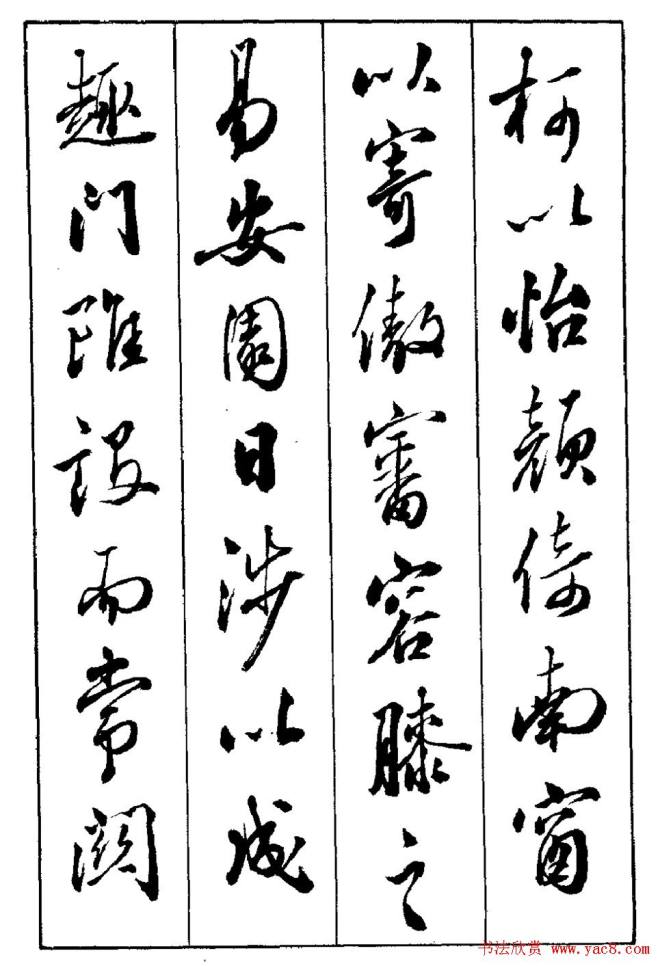 柯以怡颜倚南窗
以寄傲審容膝之
易安園日涉以成
趣门雖設而常關
书法欣赏 www.yac8.com